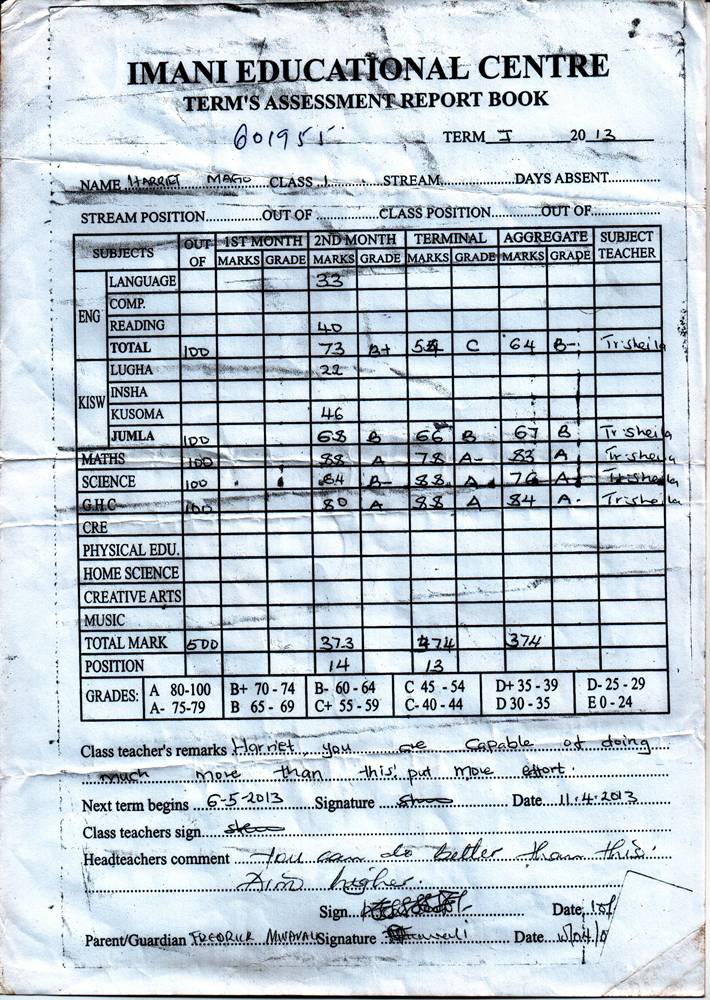 IMANI EDUCATIONAL CENTRE
TERM'S ASSESSMENT REPORT BOOK
601951 TERM I 20 13
NAME HARRIET MAGO CLASS 1 STREAM DAYS ABSENT
STREAM POSITION OUT OF CLASS POSITION OUT OF
SUBJECTS OUT OF 1ST MONTH 2ND MONTH TERMINAL AGGREGATE SUBJECT TEACHER
MARKS GRADE MARKS GRADE MARKS GRADE MARKS GRADE
ENG LANGUAGE 33
COMP.
READING 40
TOTAL 100 73 B+ 54 C 64 B- Tr. sheila
KISW LUGHA 22
INSHA
KUSOMA 46
JUMLA 100 68 B 66 B 67 B Tr. sheila
MATHS 100 88 A 78 A- 83 A Tr. sheila
SCIENCE 100 64 B- 88 A 76 A- Tr. sheila
G.H.C 100 80 A 88 A 84 A Tr. sheila
CRE
PHYSICAL EDU.
HOME SCIENCE
CREATIVE ARTS
MUSIC
TOTAL MARK 500 373 374 374
POSITION 14 13
GRADES: A 80-100 B+ 70 - 74 B- 60 - 64 C 45 -54 D+ 35 - 39 D- 25 - 29
A- 75-79 B 65 - 69 C+ 55 - 59 C- 40 - 44 D 30 - 35 E 0 - 24
Class teacher's remarks Harriet, you are capable of doing
much more than this, put more effort.
Next term begins 6-5-2013 Signature Date 11.4.2013
Class teachers sign
Headteachers comment You can do better than this.
Aim higher.
Sign. Date
Parent/Guardian FREDRICK Signature Date